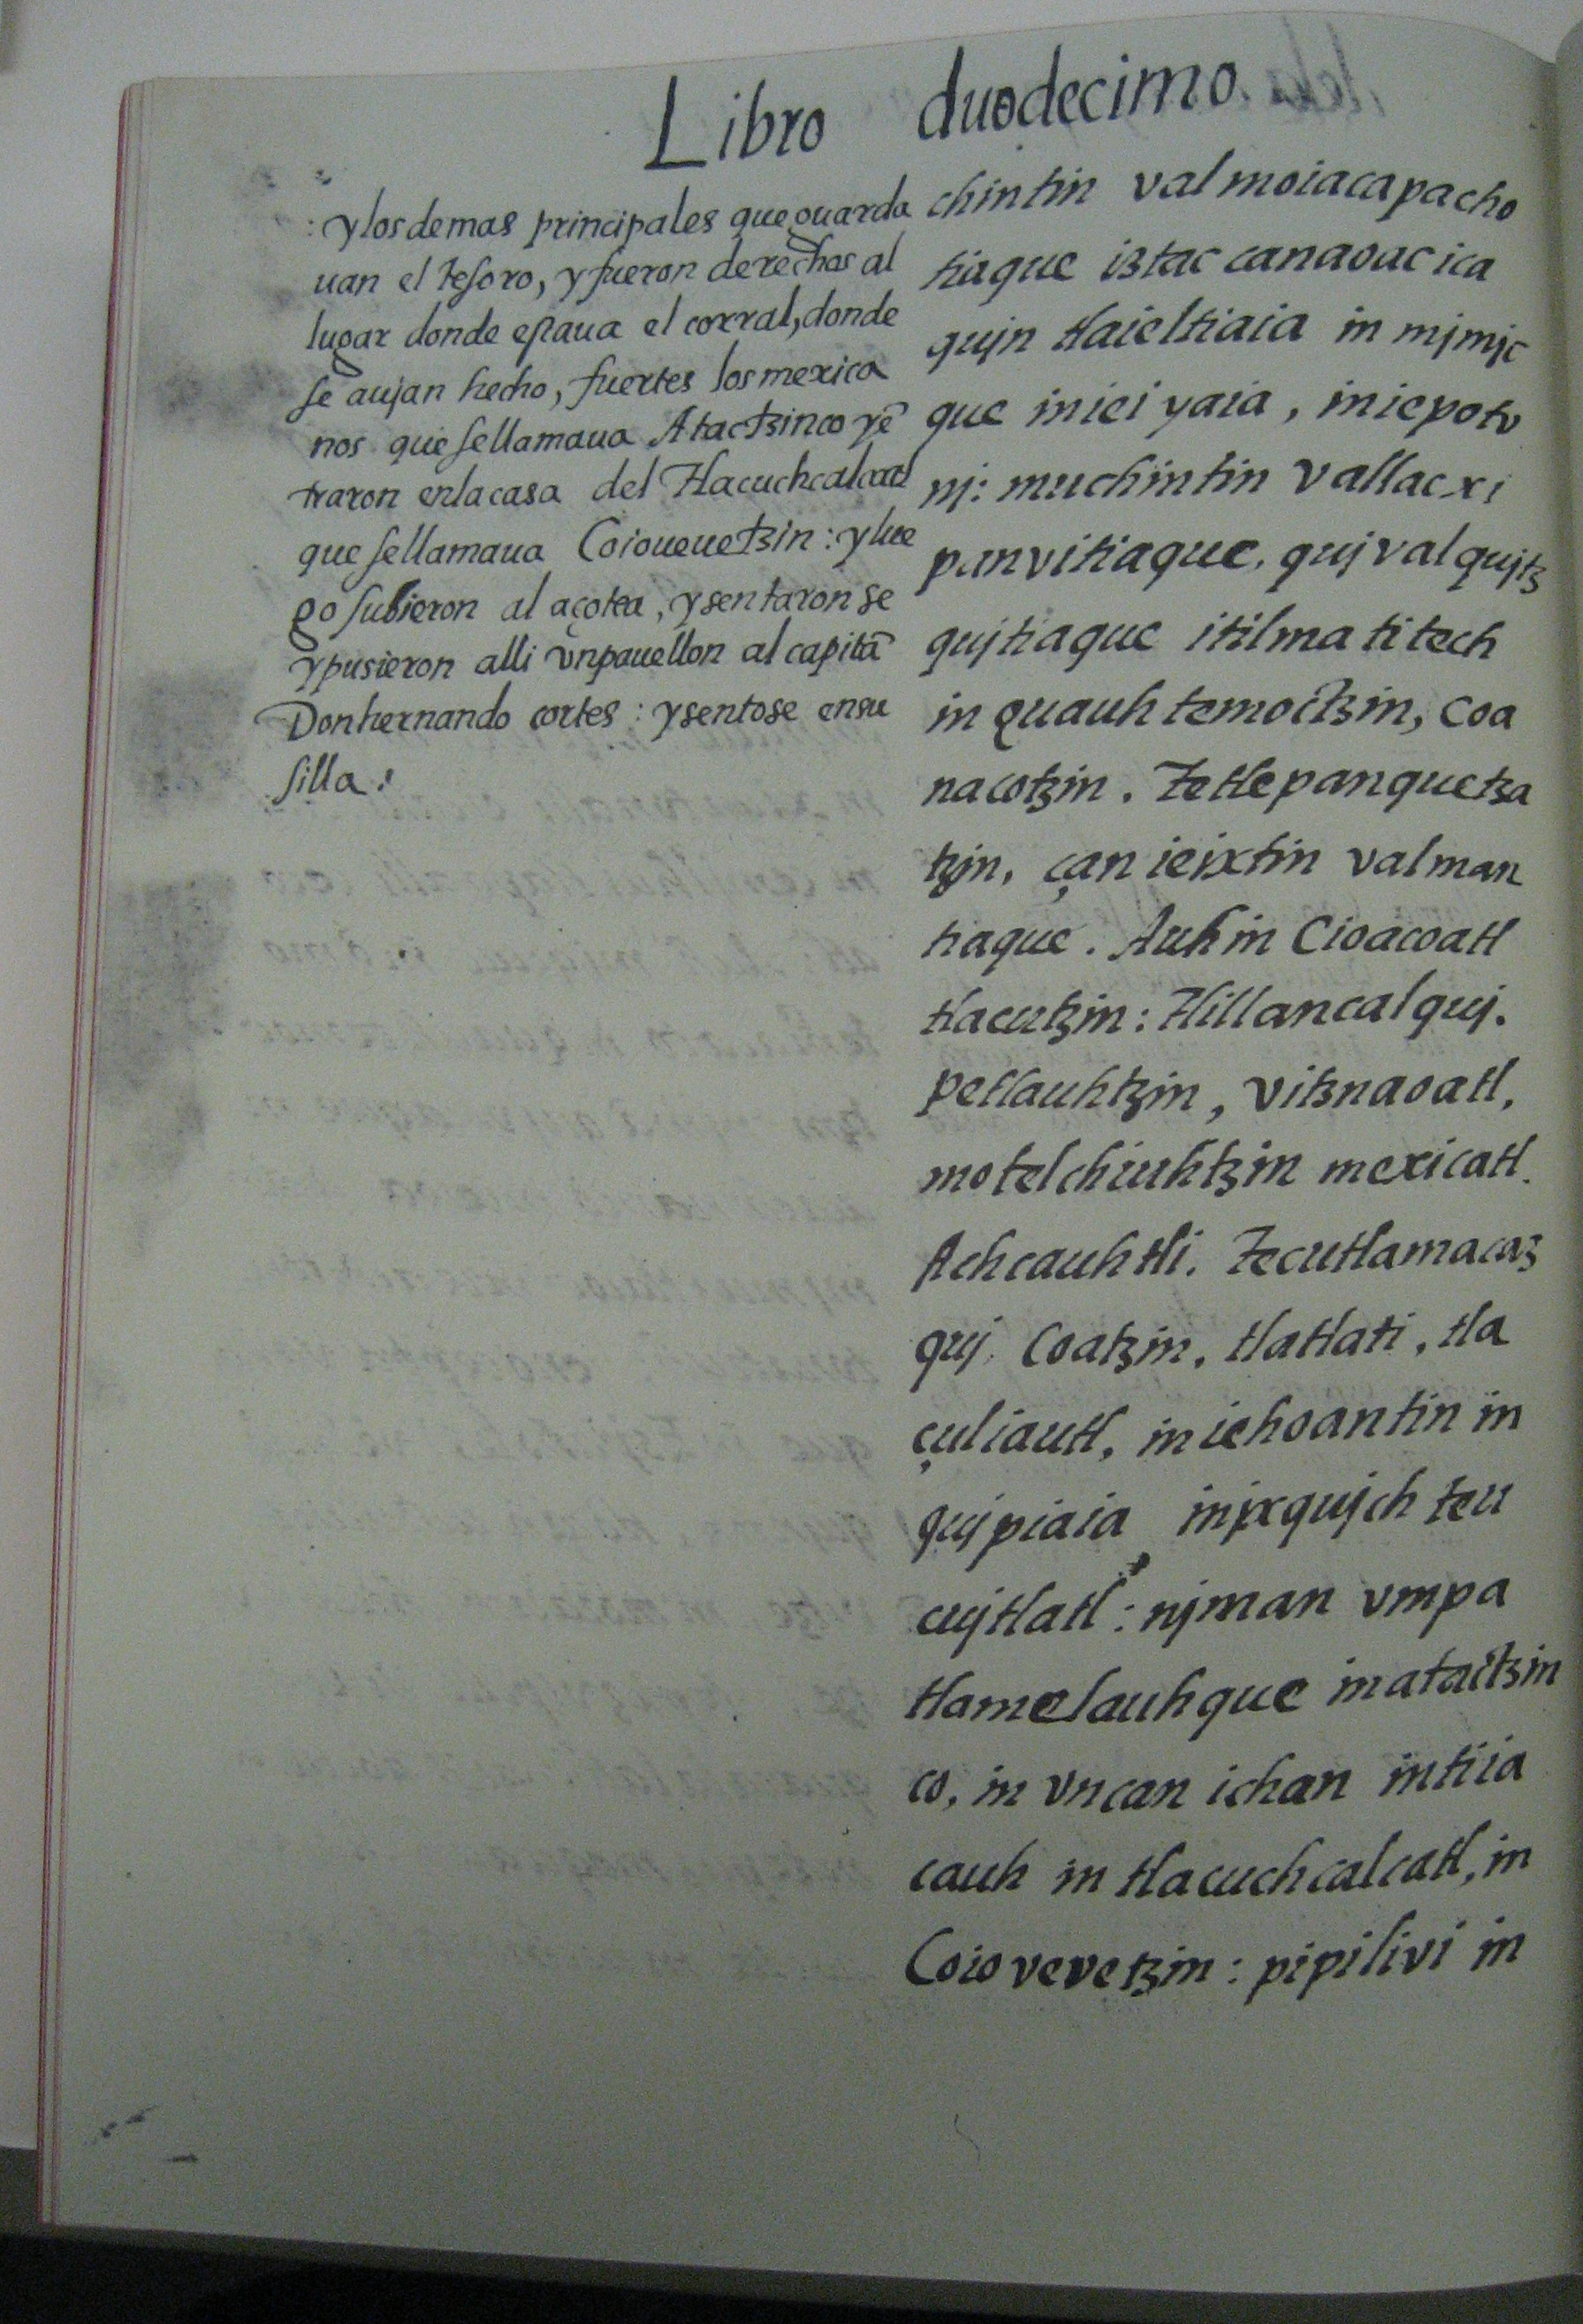 Libro duodecimo.
: y los demas principales que guarda
uan el tesoro, y fueron derechos al
lugar donde estaua el corral, donde
se aujan hecho, fuertes los mexica
nos que se llamaua Atactzinco y ē
traron en la casa del Tlacuchcalcatl
que se llamaua Coioueuetzin: y lue
go subieron al açotea, y sentaron se
y pusieron alli vn pauellon al capitā
Don hernando cortes: y sentose en su
silla:
chintin valmoiacapacho
tiaque iztac canaoac ica
qujn tlaieltiaia in mjmjc
que in iei yaia, in iepotv
nj: muchintin vallacxi
panvitiaque. quj valqujtz
qujtiaque itilma titech
in quauhtemoctzin, Coa
nacotzin. Tetlepanquetza
tzin, çan ieixtin valman
tiaque. Auh in Cioacoatl
tlacutzin: Tlillancalquj.
petlauhtzin, vitznaoatl,
motelchiuhtzin mexicatl.
Achcauhtli. Tecutlamacaz
quj. Coatzin, tlatlati, tla
çuliautl, in iehoantin in
qujpiaia injxqujch teu
cujtlatl: njman vmpa
tlamelauhque in atactzin
co, in vncan ichan in tiia
cauh in tlacuchcalcatl, in
Coiovevetzin: pipilivi in